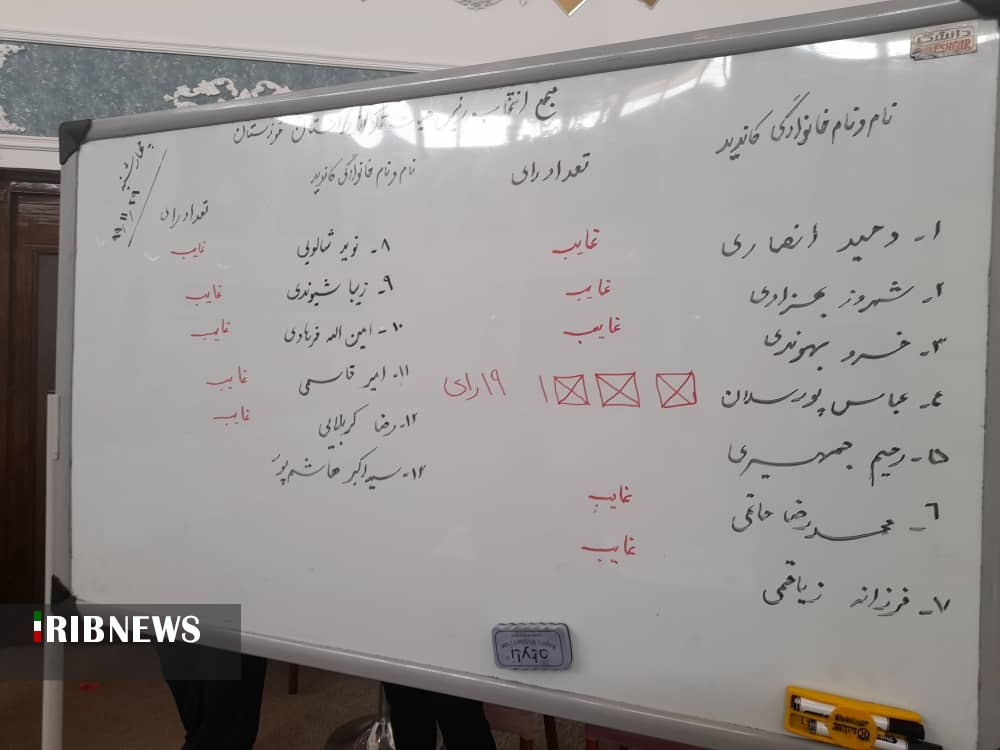 مجمع انتخاب رئیس هیئت استان خوزستان
چهارشنبه
۹۹/۱۱/۲۹
نام و نام خانوادگی کاندید
تعداد رای
۱- وحید انصاری
غایب
۲- شهروز بهزادی
غایب
۳- خسرو بهوندی
غایب
٤- عباس پورسلان
۱۹ رای
۵- رحیم جمهیری
۶- محمدرضا حاتمی
غایب
۷- فرزانه زیاقمی
غایب
نام و نام خانوادگی کاندید
تعداد رای
۸- نوید شالویی
غایب
۹- زیبا شیوندی
غایب
۱۰- امین اله فرهادی
غایب
۱۱- امیر قاسمی
غایب
۱۲- رضا کربلایی
غایب
۱۳- سید اکبر هاشم پور
دانشگر
DANESHGAR
atyli
IRIBNEWS